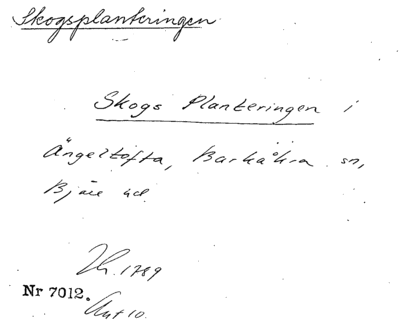 Skogsplanteringen
Skogs Planteringen i
Ängeltofta, Barkåkra sn,
Bjäre hd.
1789
Nr 7012.
Akt 10.